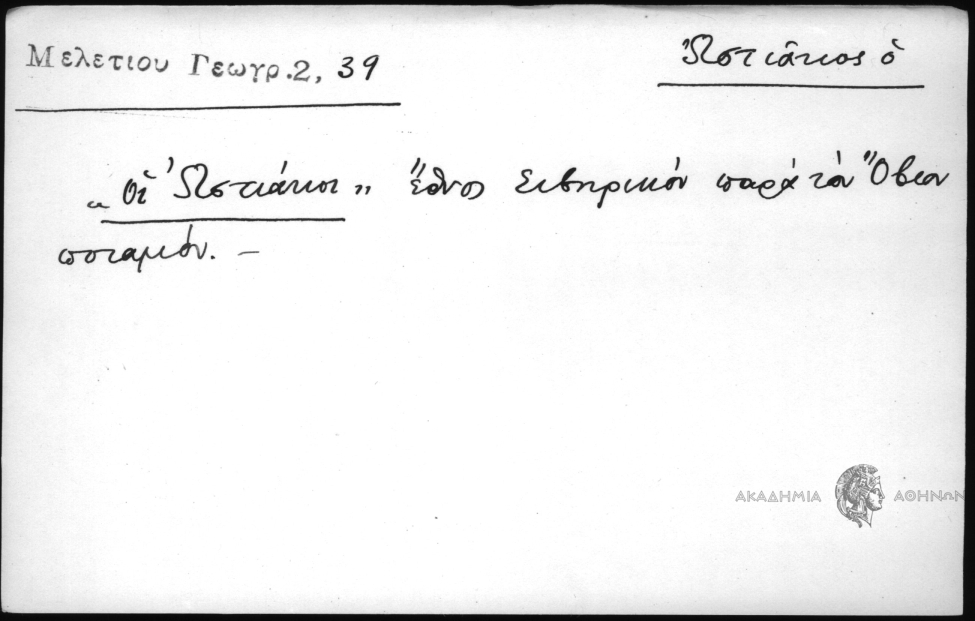 Μελετιου Γεωγρ.2, 39
Ὠστιᾶκος ὁ
„ Οἱ Ὠστιάκοι „ ἔθνος Σιβηρικόν παρά τόν Ὄβιον
ποταμόν. –
ΑΚΑΔΗΜΙΑ ΑΘΗΝΩΝ